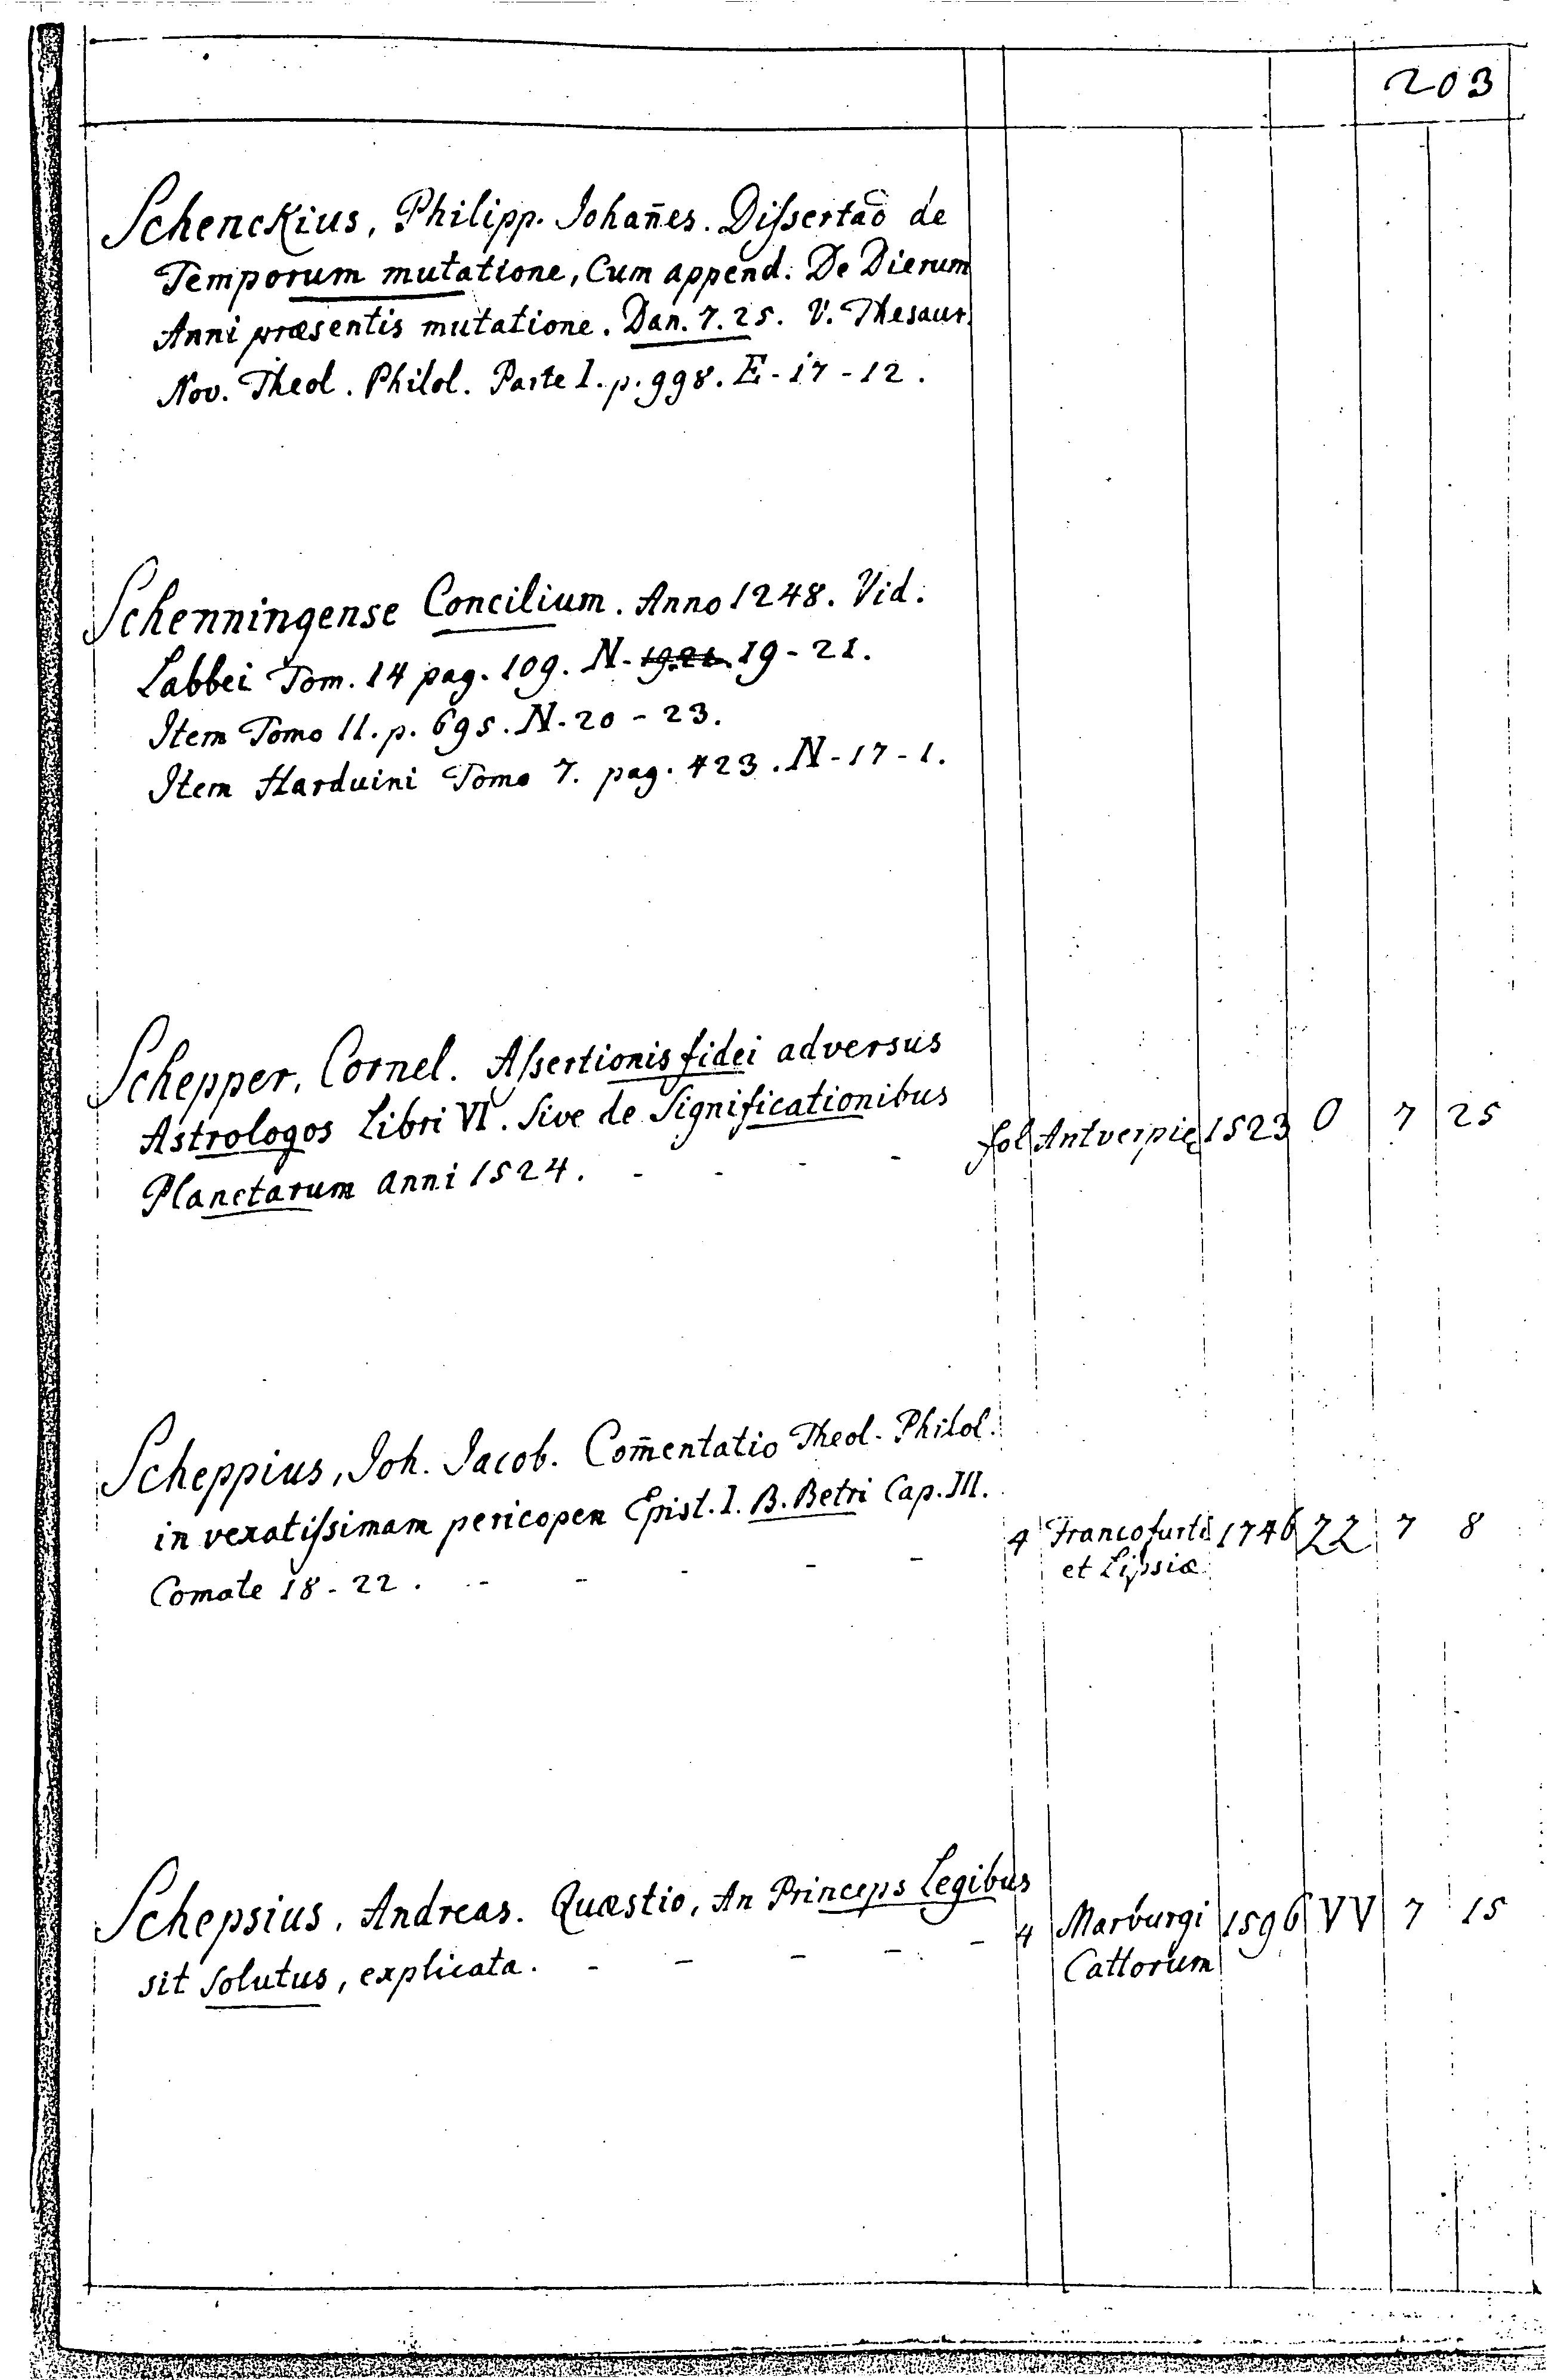 203
Schenckius, Philipp. Johan̄es. Dissertāo de
Temporum mutatione, Cum append. De Dierum
Anni præsentis mutatione. Dan. 7. 25. V. Thesaur.
Nov. Theol. Philol. Parte I. p. 998. E-17-12.
Schenningense Concilium. Anno 1248. Vid.
Labbei Tom. 14 pag. 109. N- 19.21. 19-21.
Item Tomo 11. p. 695. N-20-23.
Item Harduini Tomo 7. pag. 423. N-17-1.
Schepper, Cornel. Assertionis fidei adversus
Astrologos Libri VI. Sive de Significationibus
Planetarum anni 1524. - - - - fol Antverpię 1523 O 7 25
Scheppius, Joh. Jacob. Com̄entatio Theol. Philol.
in vexatissimam pericopen Epist. I. B. Betri Cap. III.
Comate 18-22. - - - - - 4 Francofurti 1746 ZZ 7 8
et Lipsiæ
Schepsius, Andreas. Quæstio, An Princeps Legibus
sit solutus, explicata. - - - - - 4 Marburgi 1596 VV 7 15
Cattorum